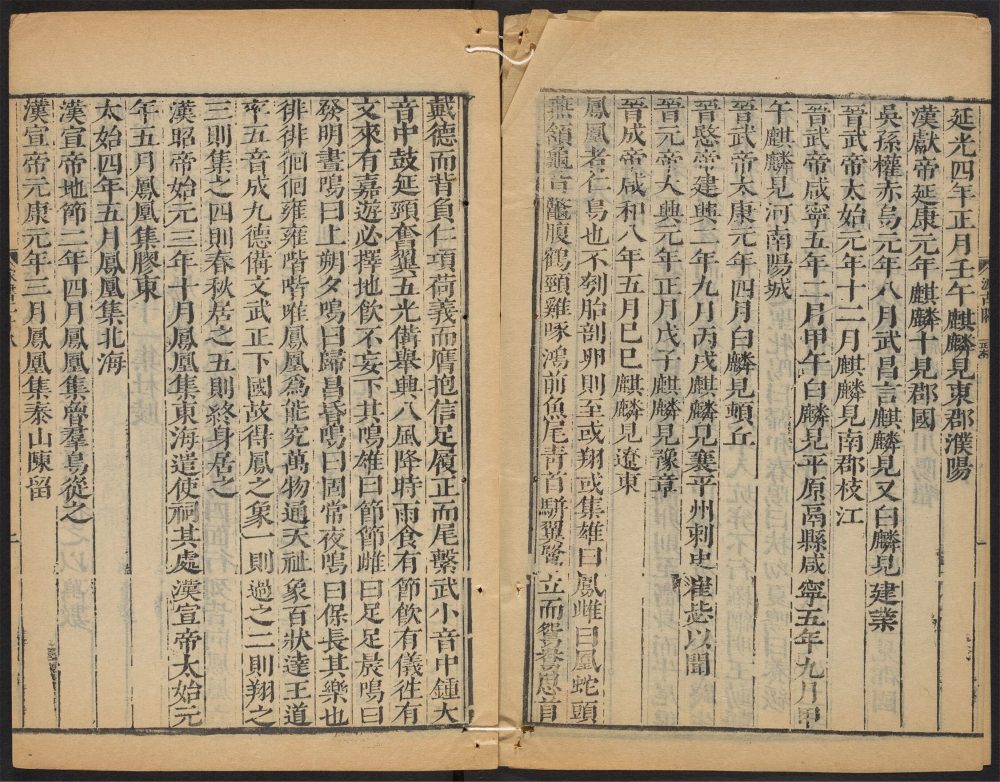 延光四年正月壬午麒麟見東郡濮陽
漢獻帝延康元年麒麟十見郡國
吳孫權赤烏元年八月武昌言麒麟見又白麟見建業
晉武帝太始元年十二月麒麟見南郡枝江
晉武帝咸寧五年二月甲午白麟見平原鬲縣咸寧五年九月甲
午麒麟見河南陽城
晉武帝太康元年四月白麟見頓丘
晉愍帝建興二年九月丙戌麒麟見襄平州刺史崔毖以聞
晉元帝大興元年正月戊子麒麟見豫章
晉成帝咸和八年五月己巳麒麟見遼東
鳳凰者仁鳥也不刳胎剖卵則至或翔或集雄曰鳳雌曰凰蛇頭
燕頷龜背鼈腹鶴頸雞喙鴻前魚尾青首駢翼鷺立而鴛鴦思首
戴德而背負仁項荷義而膺抱信足履正而尾繫武小音中鍾大
音中鼓延頸奮翼五光備舉興八風降時雨食有節飲有儀徃有
文來有嘉遊必擇地飲不妄下其鳴雄曰節節雌曰足足晨鳴曰
發明晝鳴曰上朔夕鳴曰歸昌昏鳴曰固常夜鳴曰保長其樂也
徘徘徊徊雍雍喈喈唯鳳凰為能究萬物通天祉象百狀達王道
率五音成九德備文武正下國故得鳳之象一則過之二則翔之
三則集之四則春秋居之五則終身居之
漢昭帝始元三年十月鳳凰集東海遣使祠其處漢宣帝太始元
年五月鳳凰集膠東
太始四年五月鳳凰集北海
漢宣帝地節二年四月鳳凰集魯羣鳥從之
漢宣帝元康元年三月鳳凰集泰山陳留